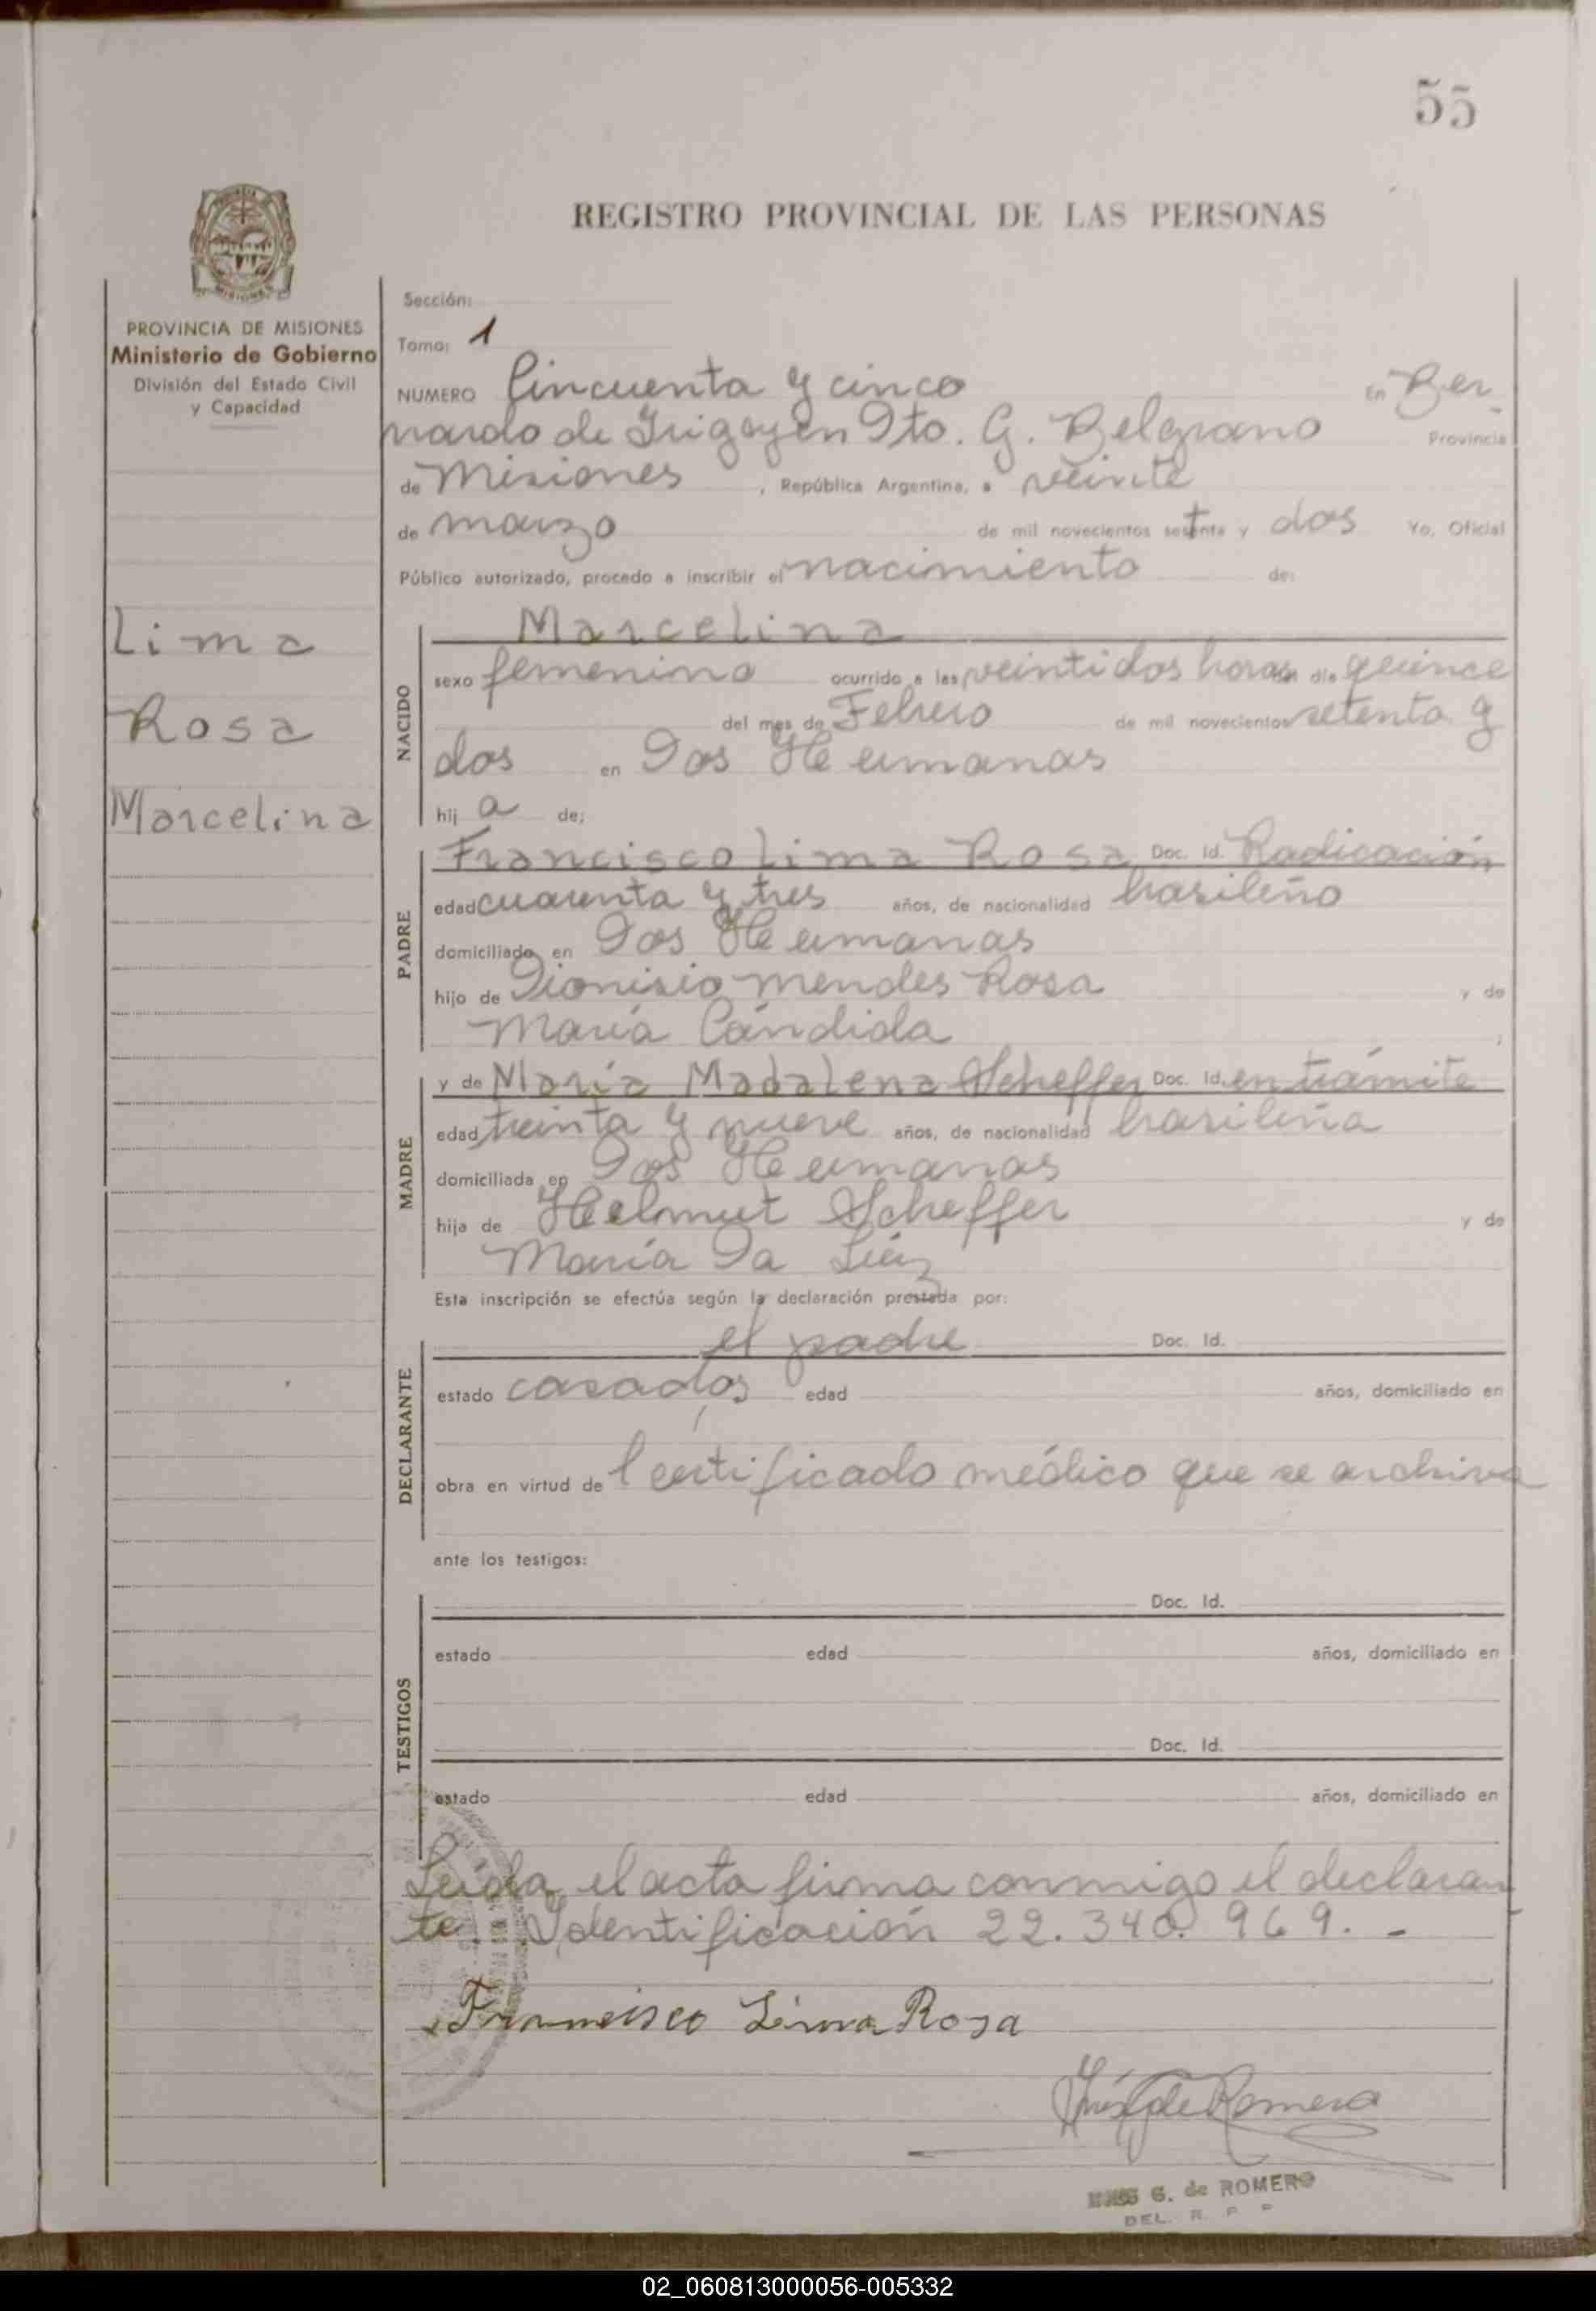 55
REGISTRO PROVINCIAL DE LAS PERSONAS
PROVINCIA DE MISIONES
Ministerio de Gobierno
División del Estado Civil
y Capacidad
Lima
Rosa
Marcelina
Sección:
Tomo: 1
NUMERO Cincuenta y cinco En Ber
nardo de Irigoyen Dto. G. Belgrano Provincia
de Misiones, República Argentina, a veinte
de marzo de mil novecientos setenta y dos Yo, Oficial
Público autorizado, procedo a inscribir el nacimiento de:
NACIDO
Marcelina
sexo femenino ocurrido a las veintidos horas día quince
del mes de Febrero de mil novecientos setenta y
dos en Dos Hermanas
hij a de;
PADRE
Francisco Lima Rosa Doc. Id. Radicación
edad cuarenta y tres años, de nacionalidad brasileño
domiciliado en Dos Hermanas
hijo de Dionisio Mendes Rosa y de
María Cándida
MADRE
y de María Madalena Scheffer Doc. Id. en trámite
edad treinta y nueve años, de nacionalidad brasileña
domiciliada en Dos Hermanas
hija de Helmut Scheffer y de
María Da Luz
Esta inscripción se efectúa según la declaración prestada por:
DECLARANTE
el padre Doc. Id.
estado casados edad años, domiciliado en
obra en virtud de Certificado médico que se archiva
ante los testigos:
TESTIGOS
Doc. Id.
estado edad años, domiciliado en
Doc. Id.
estado edad años, domiciliado en
Leída el acta firma conmigo el declaran
te. Identificación 22.340.969.-
Francisco Lima Rosa
Inés G de Romero
INES G. de ROMERO
DEL. R. P. P
02_060813000056-005332